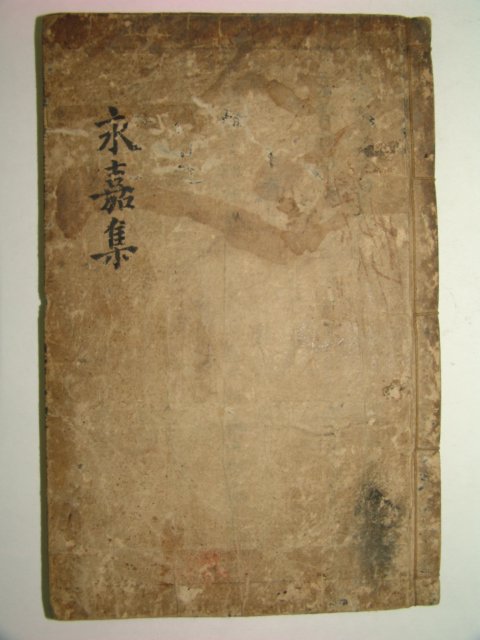 永嘉集